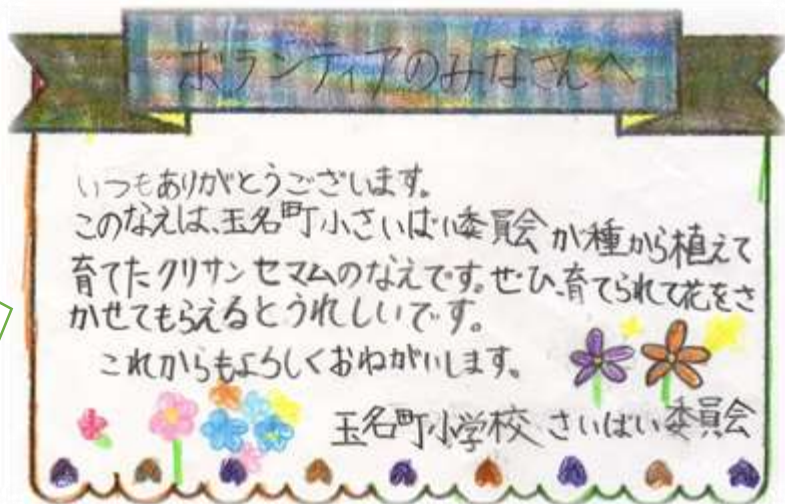 ボランティアのみなさんへ
いつもありがとうございます。
このなえは、玉名町小さいばい委員会が種から植えて
育てたクリサンセマムのなえです。ぜひ、育てられて花をさ
かせてもらえるとうれしいです。
これからもよろしくおねがいします。
玉名町小学校 さいばい委員会